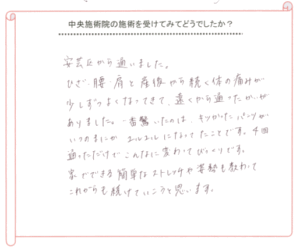 中央施術院の施術を受けてみてどうでしたか?
安芸区から通いました。
ひざ、腰、肩と産後から続く体の痛みが
少しずつよくなってきて、遠くから通ったかいが
ありました。一番驚いたのは、キツかったパンツが
いつのまにかユルユルになってたことです。4回
通っただけでこんなに変わってびっくりです。
家でできる簡単なストレッチや姿勢も教わって
これからも続けていこうと思います。